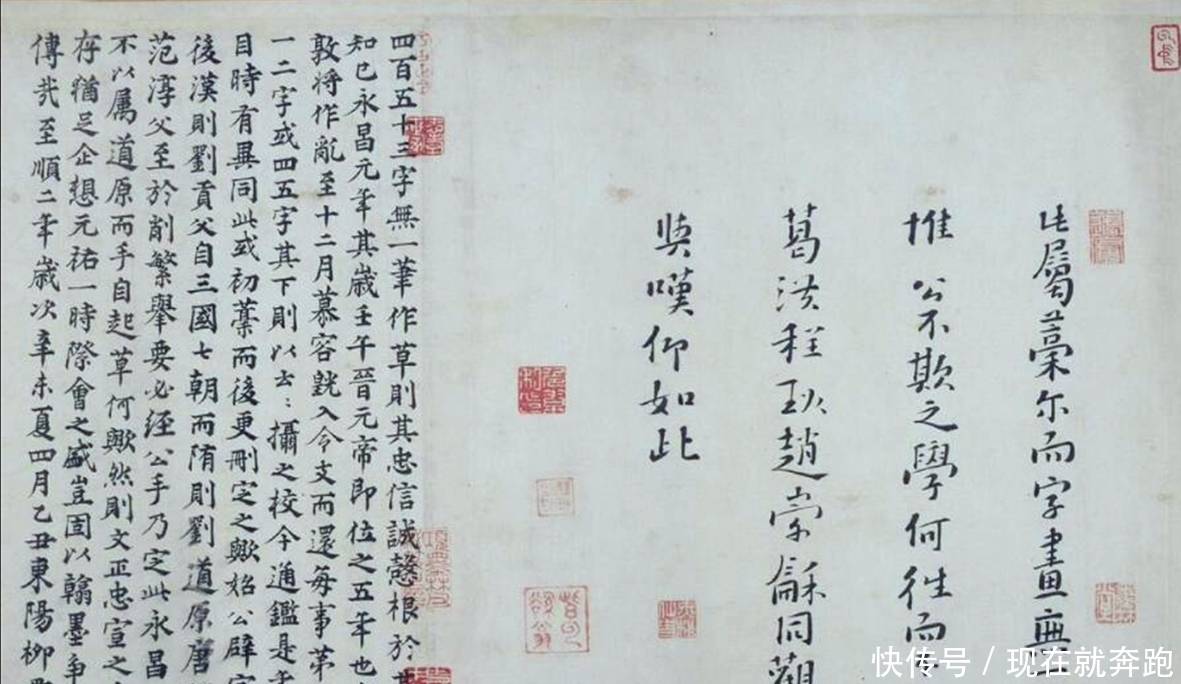 此屬藁尔而字畫無
推公不欺之學何往而
葛洪程珌趙崇龢同觀
與嘆仰如此
四百五十三字無一筆作草則其忠信誠慤根於
知已永昌元年其歲壬午晉元帝即位之五年也
敦將作亂至十二月慕容皝入令支而還每事第
一二字或四五字其下則以云〻攝之校今通鑑是年
目時有異同此或初藁而後更刪定之歟始公辟
後漢則劉貢父自三國七朝而隋則劉道原唐
范淳父至於削繁舉要必經公手乃定此永昌
不以屬道原而手自起草何歟然則文正忠宣之
存猶足企想元祐一時際會之盛豈固以翰墨爭
傳哉至順二年歲次辛未夏四月乙丑東陽柳
快传号 / 现在就奔跑